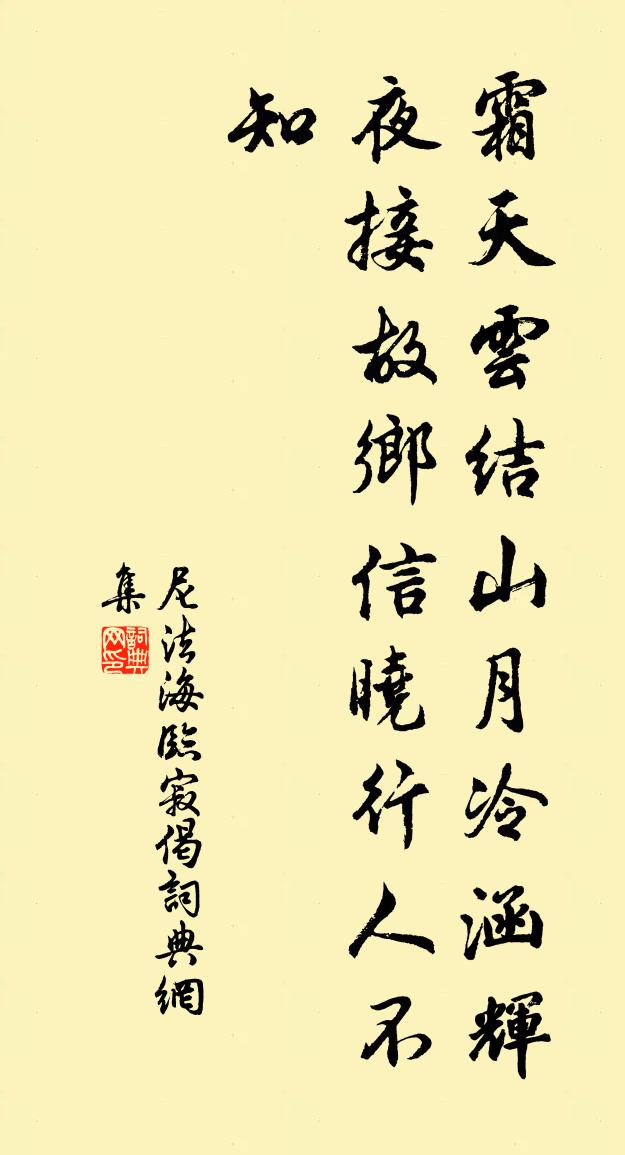 霜天雲結山月冷涵輝
夜接故鄉信曉行人不
知
尼法海臨寂偈詞典網
集
詞典
网印